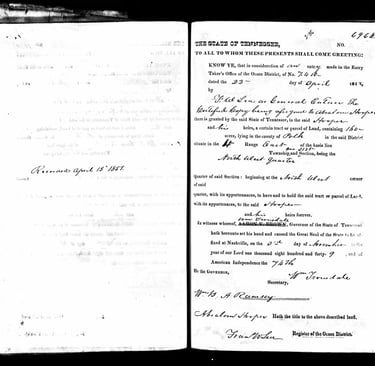 Received April 15th 1851.
696
THE STATE OF TENNESSEE, NO.
TO ALL TO WHOM THESE PRESENTS SHALL COME, GREETING:
KNOW YE, that in consideration of an entry made in the Entry
Taker's Office of the Ocoee District, of No.
dated the 22 day of April 184
as General Enterer The
Certificate being assigned to Abraham Hooper
there is granted by the said State of Tennessee, unto the said Hooper
and his heirs, a certain tract or parcel of Land, containing 160
acres, lying in the county of Polk in the said District
situate in the Range East of the basis line
Township and Section, being the
North West Quarter
quarter of said Section: beginning at the North West corner
of said
with its appurtenances, to have and to hold the said tract or parcel of Land,
with its appurtenances, to the said Hooper
and his heirs forever.
In witness whereof, AARON V. BROWN, Governor of the State of Tennessee,
hath hereunto set his hand and caused the Great Seal of the State to be af-
fixed at Nashville on the day of November in the
year of our Lord one thousand eight hundred and forty- 9 and of
American Independence the 74th
By the GOVERNOR, Wm Trousdale
Secretary.
W. B. A. Ramsey
Abraham Hooper Hath the title to the above described land.
Register of the Ocoee District.